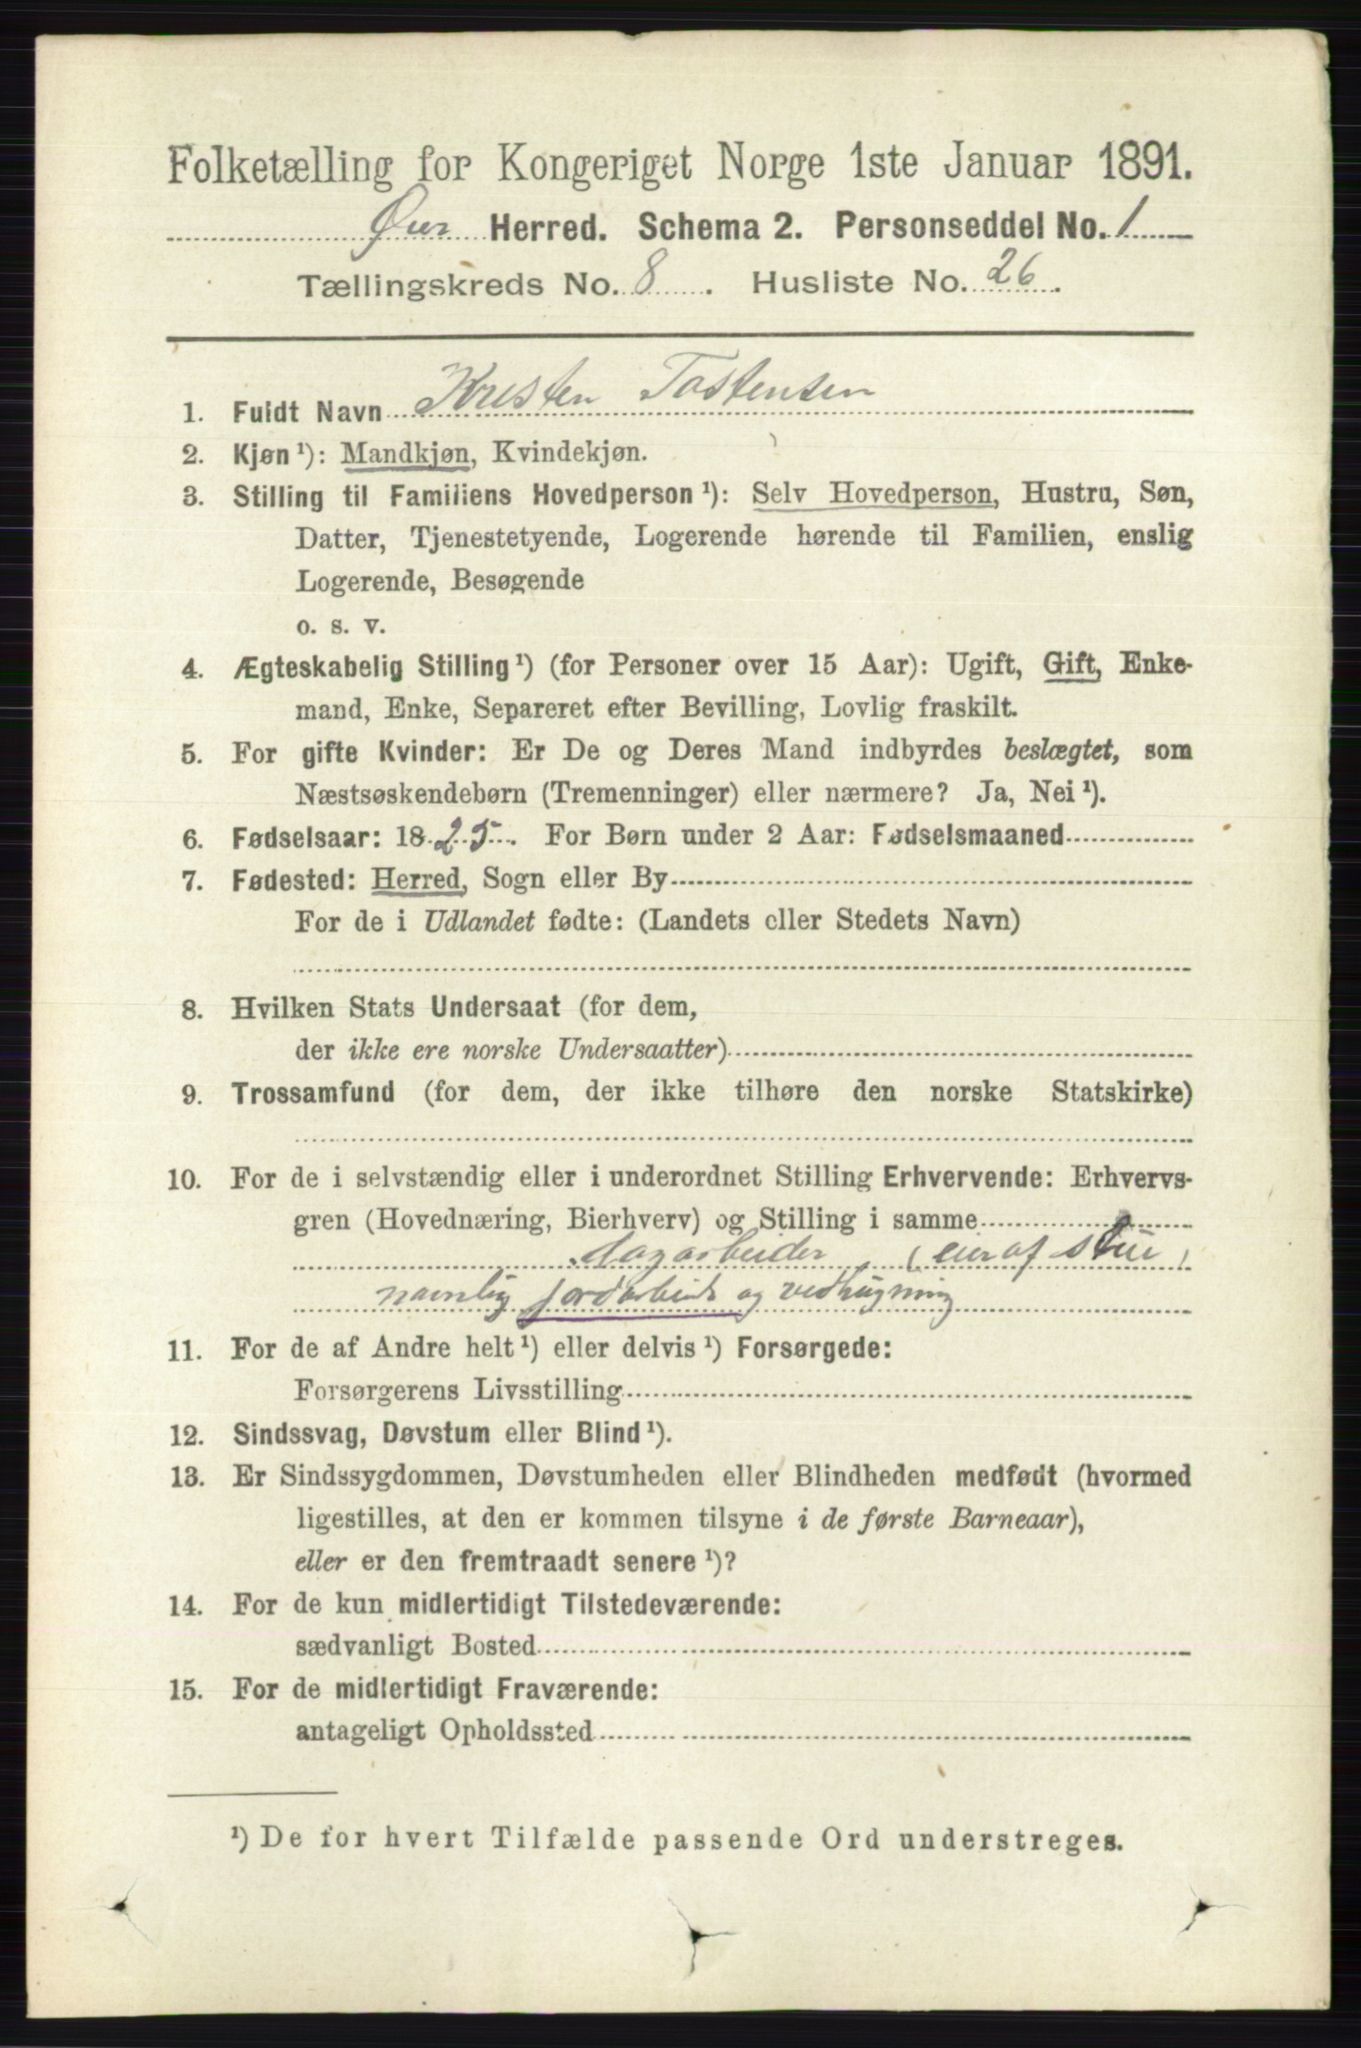 Folketælling for Kongeriget Norge 1ste Januar 1891.
Øier Herred. Schema 2. Personseddel No. 1
Tællingskreds No. 8. Husliste No. 26.
1. Fuldt Navn Kristen Tostensen
2. Kjøn ¹): Mandkjøn, Kvindekjøn.
3. Stilling til Familiens Hovedperson ¹): Selv Hovedperson, Hustru, Søn,
Datter, Tjenestetyende, Logerende hørende til Familien, enslig
Logerende, Besøgende
o. s. v.
4. Ægteskabelig Stilling ¹) (for Personer over 15 Aar): Ugift, Gift, Enke-
mand, Enke, Separeret efter Bevilling, Lovlig fraskilt.
5. For gifte Kvinder: Er De og Deres Mand indbyrdes beslægtet, som
Næstsøskendebørn (Tremenninger) eller nærmere? Ja, Nei ¹).
6. Fødselsaar: 1825. For Børn under 2 Aar: Fødselsmaaned
7. Fødested: Herred, Sogn eller By
For de i Udlandet fødte: (Landets eller Stedets Navn)
8. Hvilken Stats Undersaat (for dem,
der ikke ere norske Undersaatter)
9. Trossamfund (for dem, der ikke tilhøre den norske Statskirke)
10. For de i selvstændig eller i underordnet Stilling Erhvervende: Erhvervs-
gren (Hovednæring, Bierhverv) og Stilling i samme
dagarbeider (eier af stue)
namlig jordarbeide og vedhugning
11. For de af Andre helt ¹) eller delvis ¹) Forsørgede:
Forsørgerens Livsstilling
12. Sindssvag, Døvstum eller Blind ¹).
13. Er Sindssygdommen, Døvstumheden eller Blindheden medfødt (hvormed
ligestilles, at den er kommen tilsyne i de første Barneaar),
eller er den fremtraadt senere ¹)?
14. For de kun midlertidigt Tilstedeværende:
sædvanligt Bosted
15. For de midlertidigt Fraværende:
antageligt Opholdssted
¹) De for hvert Tilfælde passende Ord understreges.